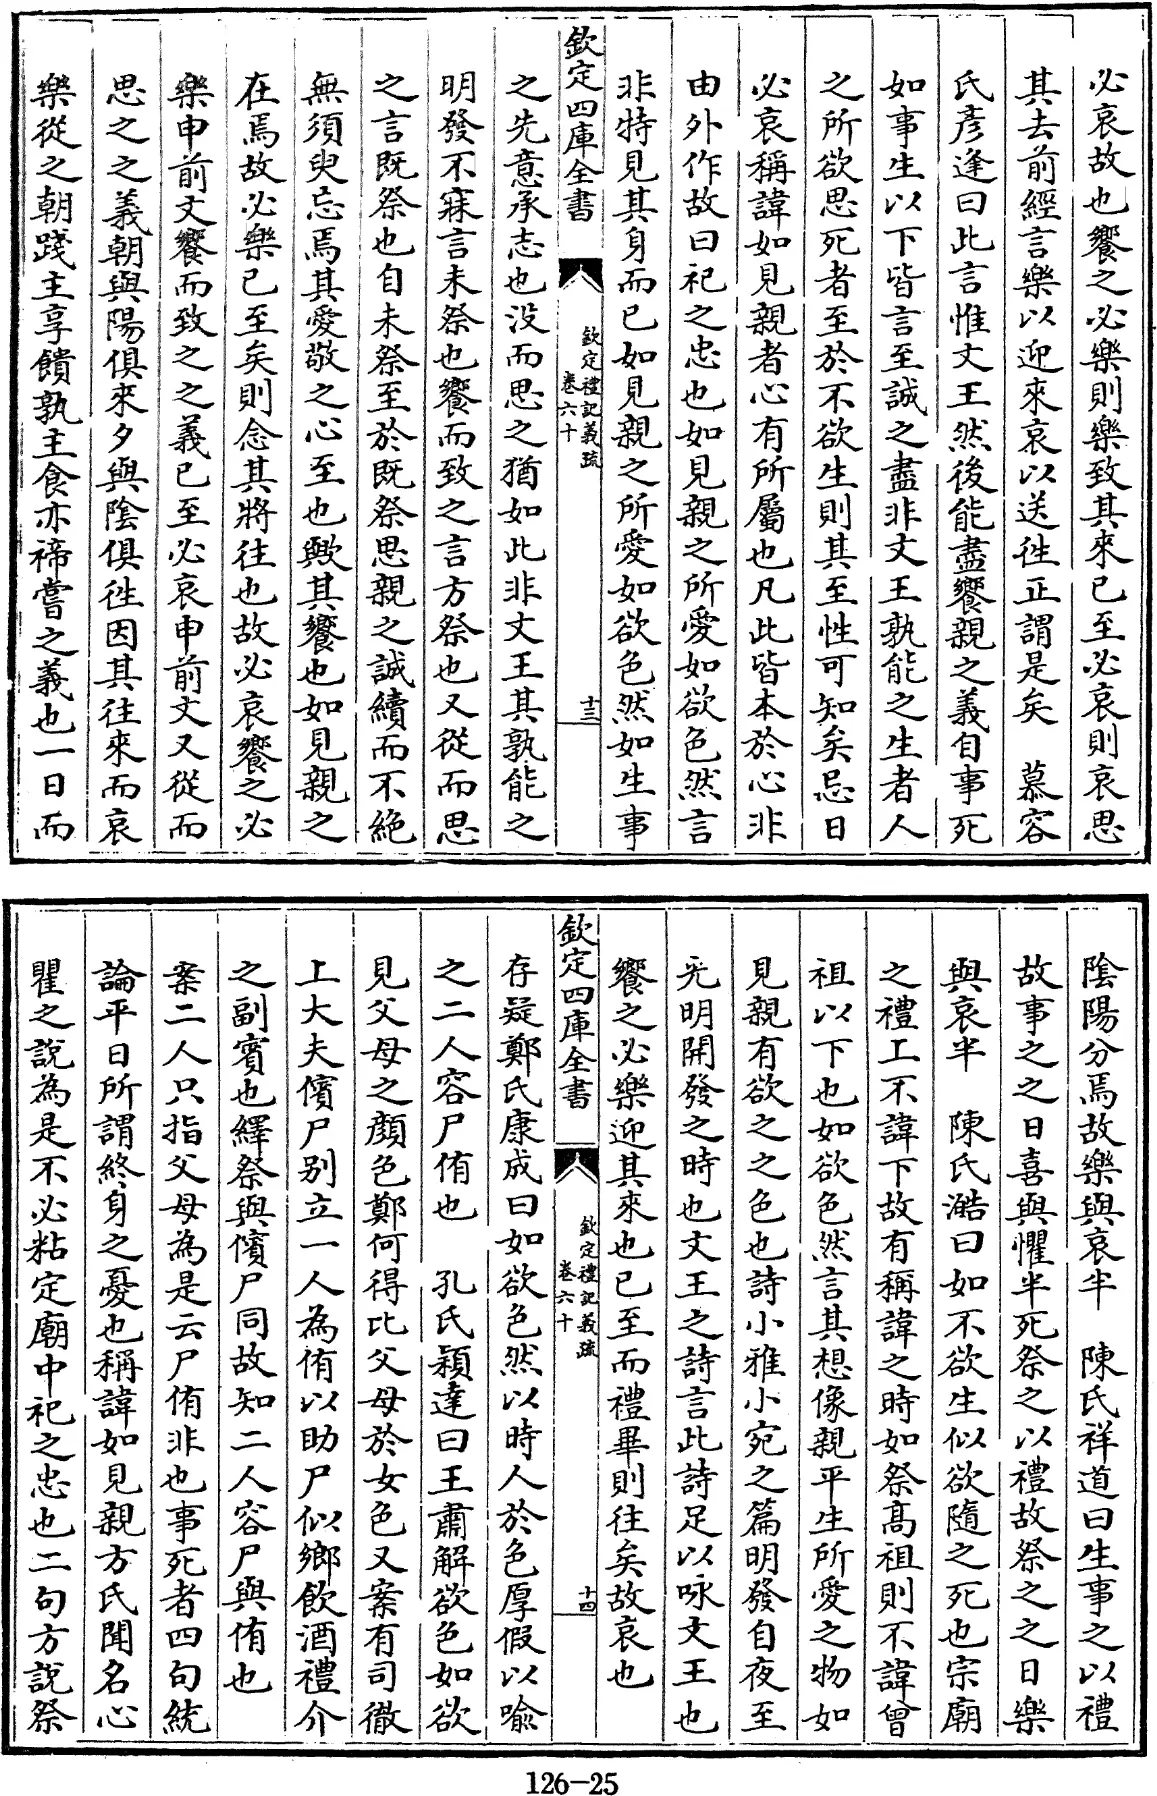 必哀故也饗之必樂則樂致其來已至必哀則哀思
其去前經言樂以迎來哀以送往正謂是矣　慕容
氏彥逢曰此言惟文王然後能盡饗親之義自事死
如事生以下皆言至誠之盡非文王孰能之生者人
之所欲思死者至於不欲生則其至性可知矣忌日
必哀稱諱如見親者心有所屬也凡此皆本於心非
由外作故曰祀之忠也如見親之所愛如欲色然言
非特見其身而已如見親之所愛如欲色然如生事
欽定四庫全書　欽定禮記義疏　卷六十　十三
之先意承志也沒而思之猶如此非文王其孰能之
明發不寐言未祭也饗而致之言方祭也又從而思
之言既祭也自未祭至於既祭思親之誠續而不絶
無須臾忘焉其愛敬之心至也歟其饗也如見親之
在焉故必樂已至矣則念其將往也故必哀饗之必
樂申前文饗而致之之義已至必哀申前文又從而
思之之義朝與陽俱來夕與陰俱徃因其往來而哀
樂從之朝踐主享饋孰主食亦禘嘗之義也一日而
陰陽分焉故樂與哀半　陳氏祥道曰生事之以禮
故事之之日喜與懼半死祭之以禮故祭之之日樂
與哀半　陳氏澔曰如不欲生似欲隨之死也宗廟
之禮上不諱下故有稱諱之時如祭高祖則不諱曾
祖以下也如欲色然言其想像親平生所愛之物如
見親有欲之之色也詩小雅小宛之篇明發自夜至
光明開發之時也文王之詩言此詩足以咏文王也
饗之必樂迎其來也已至而禮畢則往矣故哀也
欽定四庫全書　欽定禮記義疏　卷六十　十四
存疑鄭氏康成曰如欲色然以時人於色厚假以喻
之二人容尸侑也　孔氏穎達曰王肅解欲色如欲
見父母之顏色鄭何得比父母於女色又案有司徹
上大夫儐尸別立一人為侑以助尸似鄉飲酒禮介
之副賓也繹祭與儐尸同故知二人容尸與侑也
案二人只指父母為是云尸侑非也事死者四句統
論平日所謂終身之憂也稱諱如見親方氏聞名心
瞿之說為是不必粘定廟中祀之忠也二句方說祭
126-25